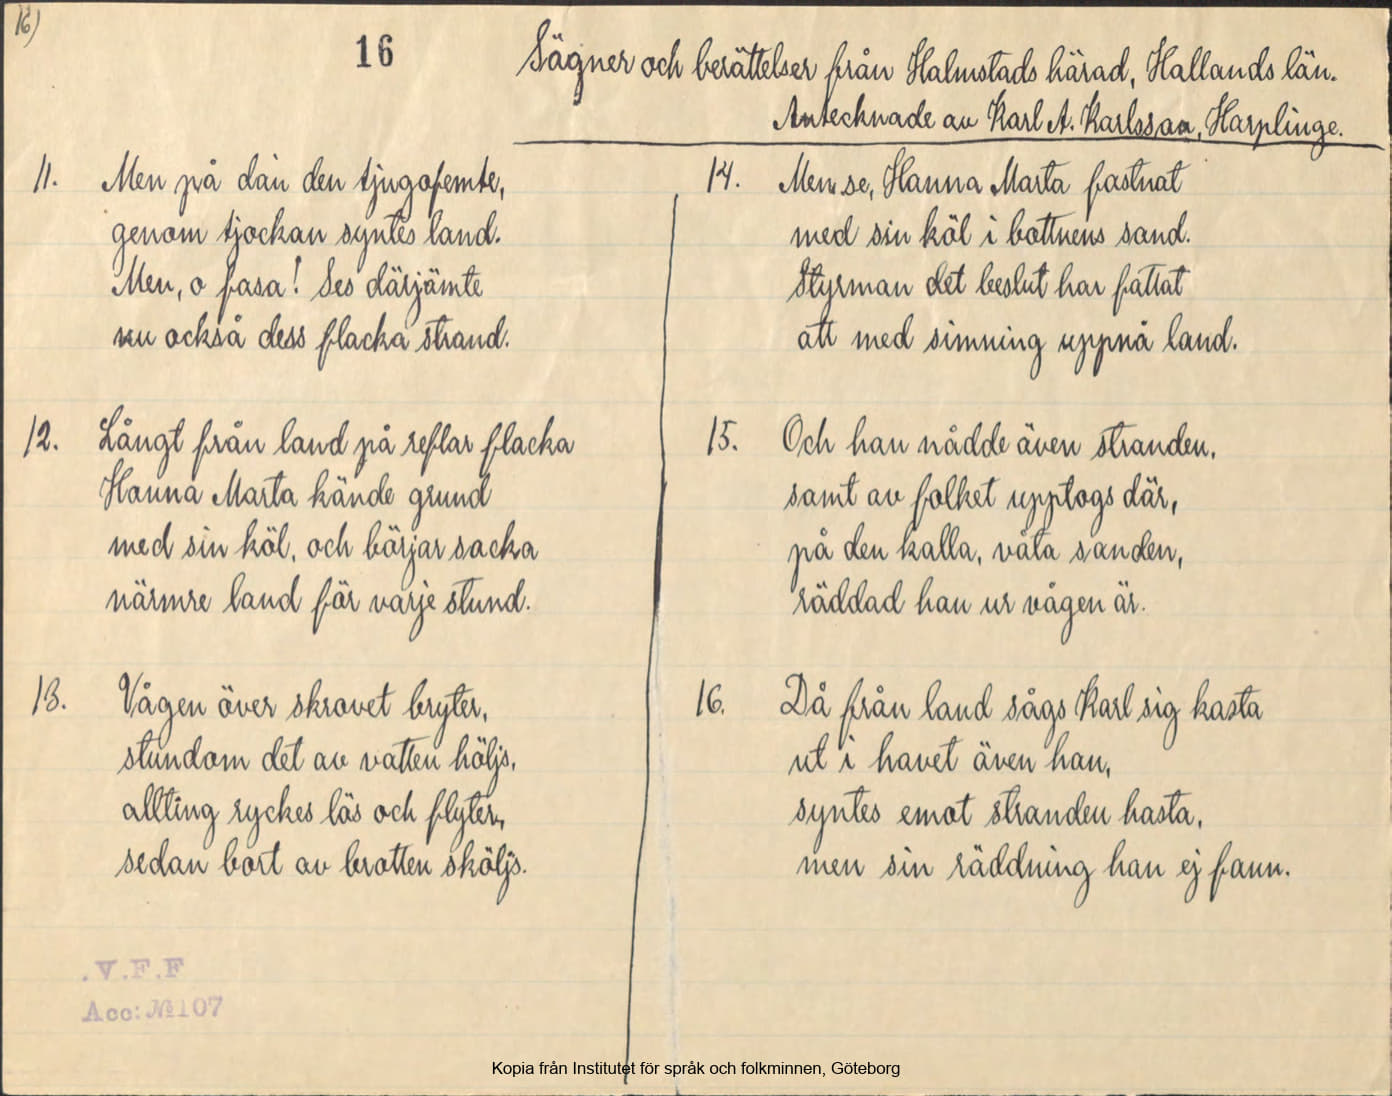 16)
16
Sägner och berättelser från Halmstads härad, Hallands län.
Antecknade av Karl A. Karlsson, Harplinge.
11. Men på da'n den tjugofemte,
genom tjockan syntes land.
Men, o fasa! Ses därjämte
nu också dess flacka strand.
12. Långt från land på reflar flacka
Hanna Marta kände grund
med sin köl, och börjar sacka
närmre land för varje stund.
13. Vågen över skrovet bryter,
stundom det av vatten höljs,
allting ryckes lös och flyter,
sedan bort av brotten sköljs.
14. Men se, Hanna Marta fastnat
med sin köl i bottnens sand.
Styrman det beslut har fattat
att med simning uppnå land.
15. Och han nådde även stranden,
samt av folket upptogs där,
på den kalla, våta sanden,
räddad han ur vågen är.
16. Då från land sågs Karl sig kasta
ut i havet även han,
syntes emot stranden hasta,
men sin räddning han ej fann.
.V.F.F
Acc: № 107
Kopia från Institutet för språk och folkminnen, Göteborg